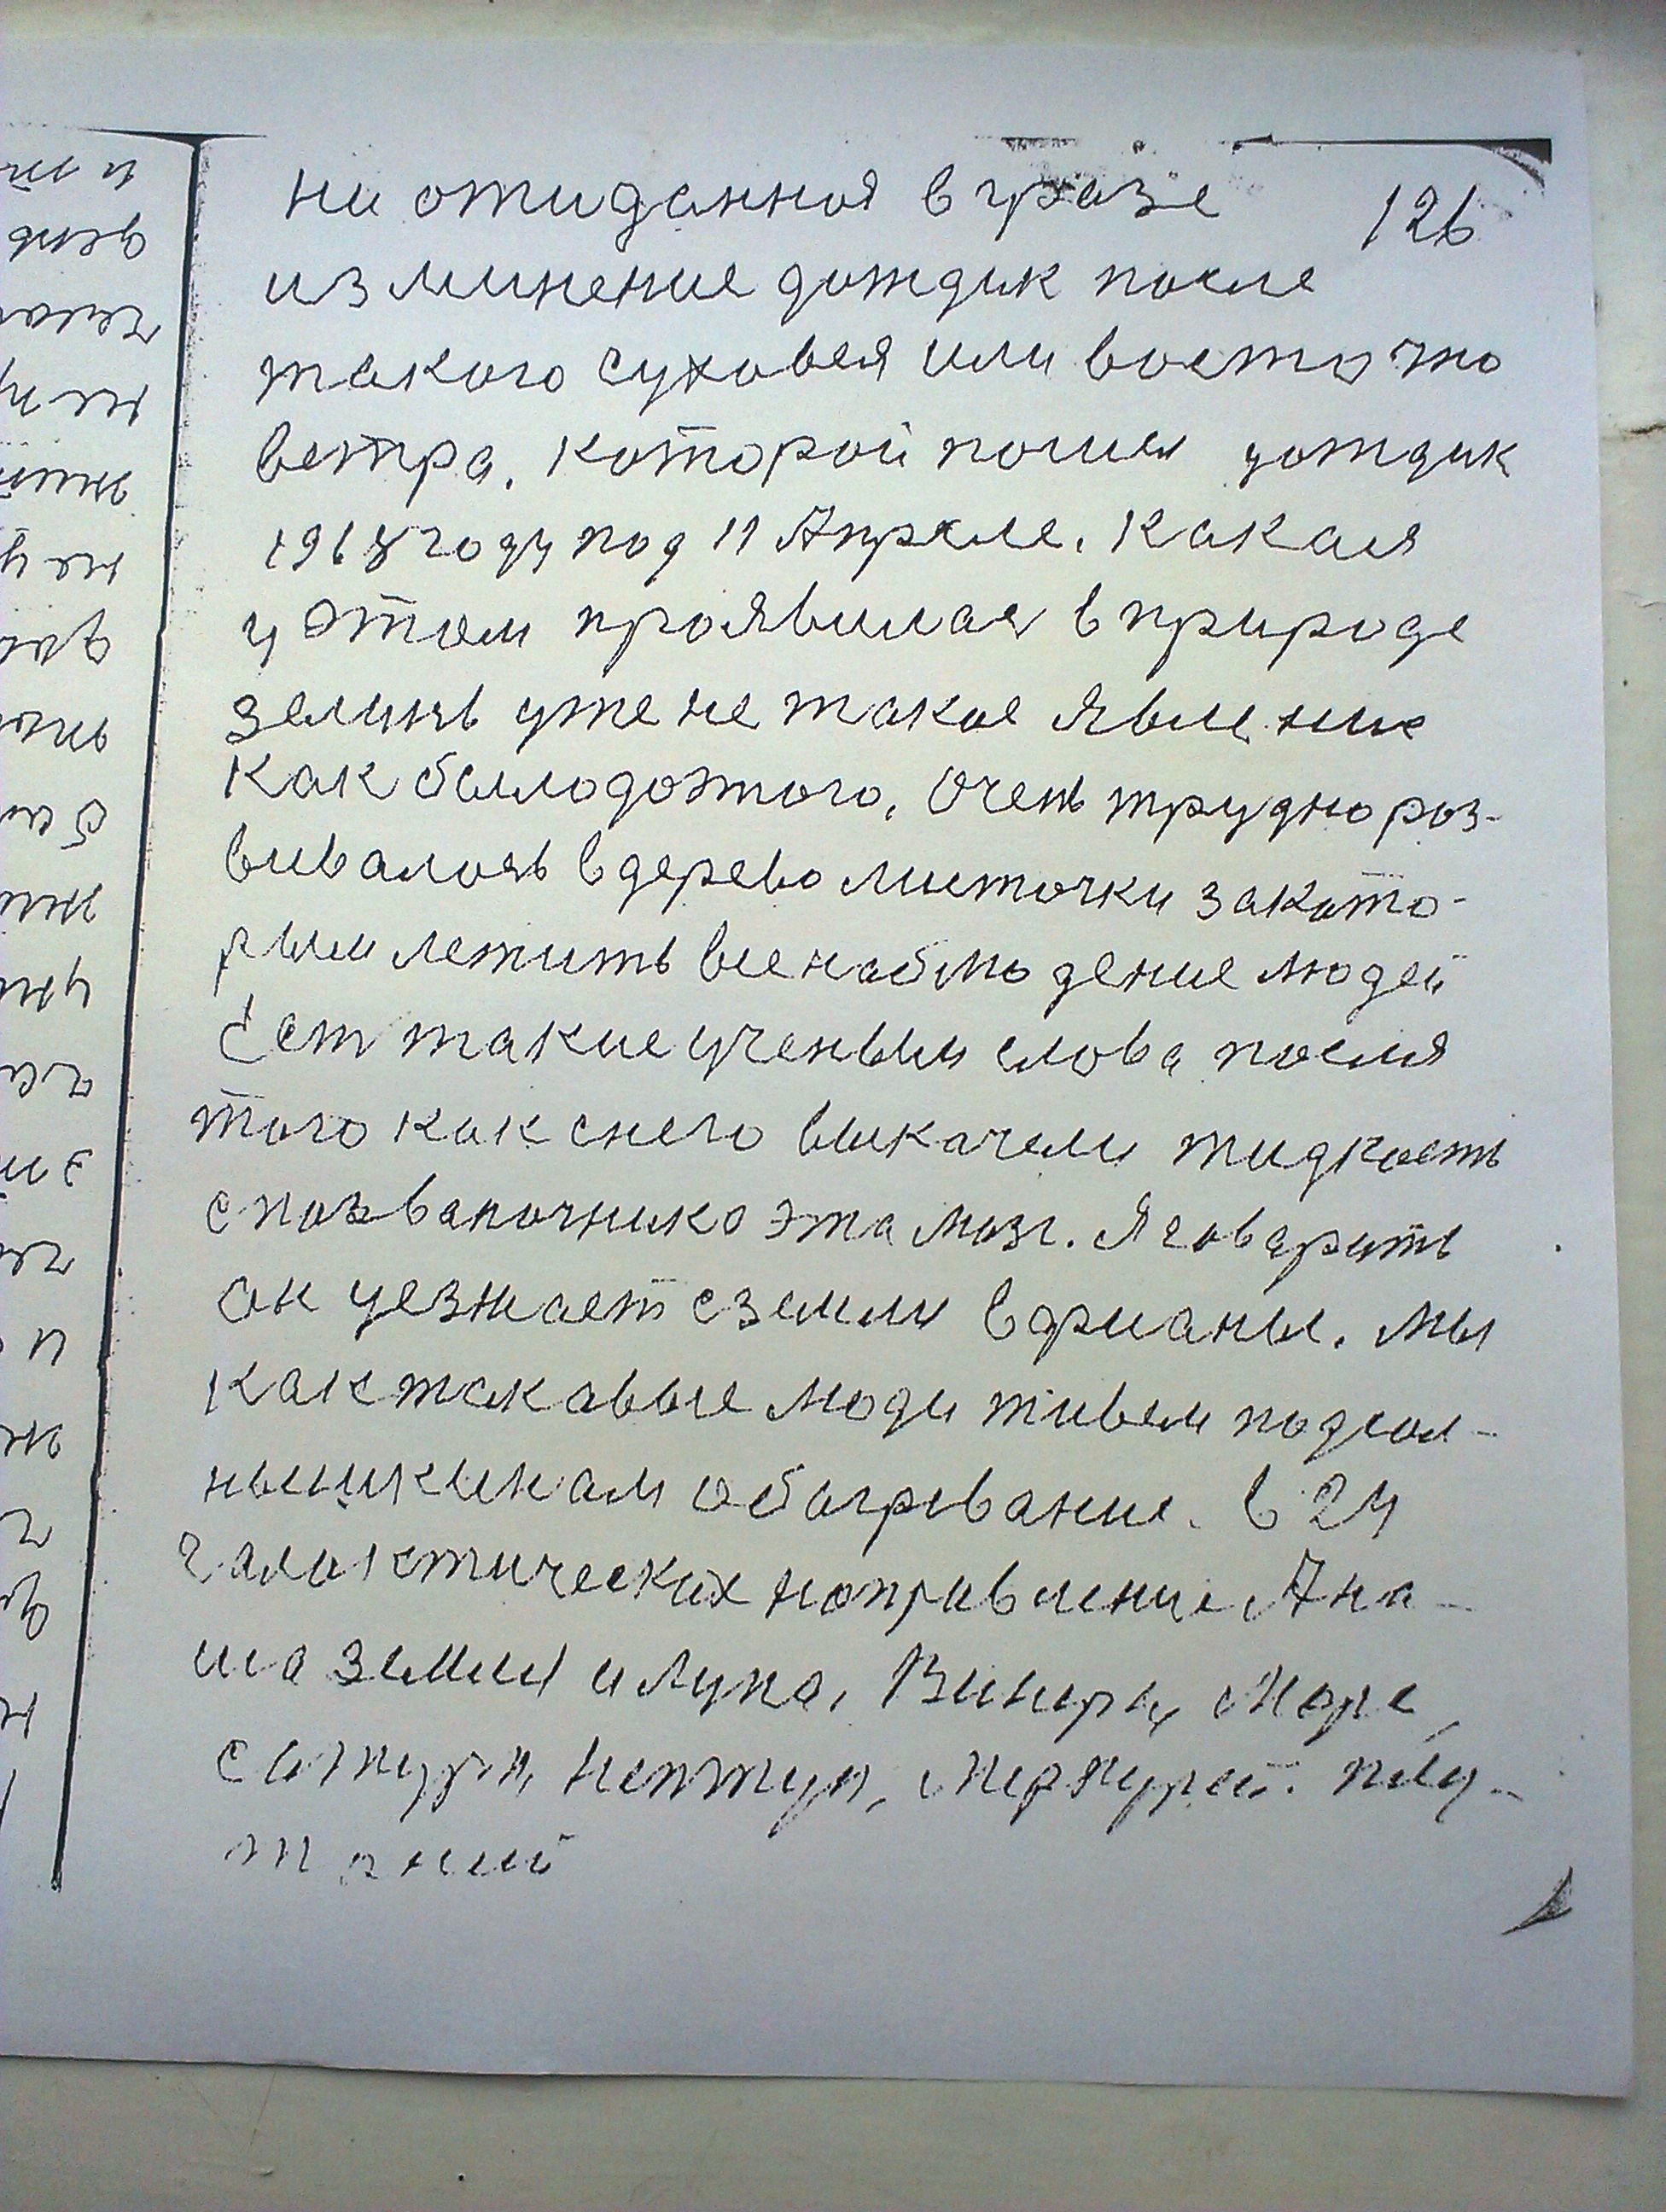 126
ни отиданная в гразе
изминение дотдик после
такого суховея или восточно
ветра. которой пошел дотдик
1968 году под 11 Апреле. Какая
у этом проявилася в природе
земинь уже не такое явление
как было до этого. Очень трудно роз-
вивалось в дерево листочки за като-
рыми летить все наблюдение людей
Ест такие ученыи слова посля
того как снего выкачели тидкость
с позваночнико эта мозг. Я говарить
он уезжает с земли в
как такавые люди тивем под сол-
обагревание. в 24
галактических направление А на-
ша земля и луна, Винира, Марс,
сатурн, Нептун, Меркурей. плу-
таний